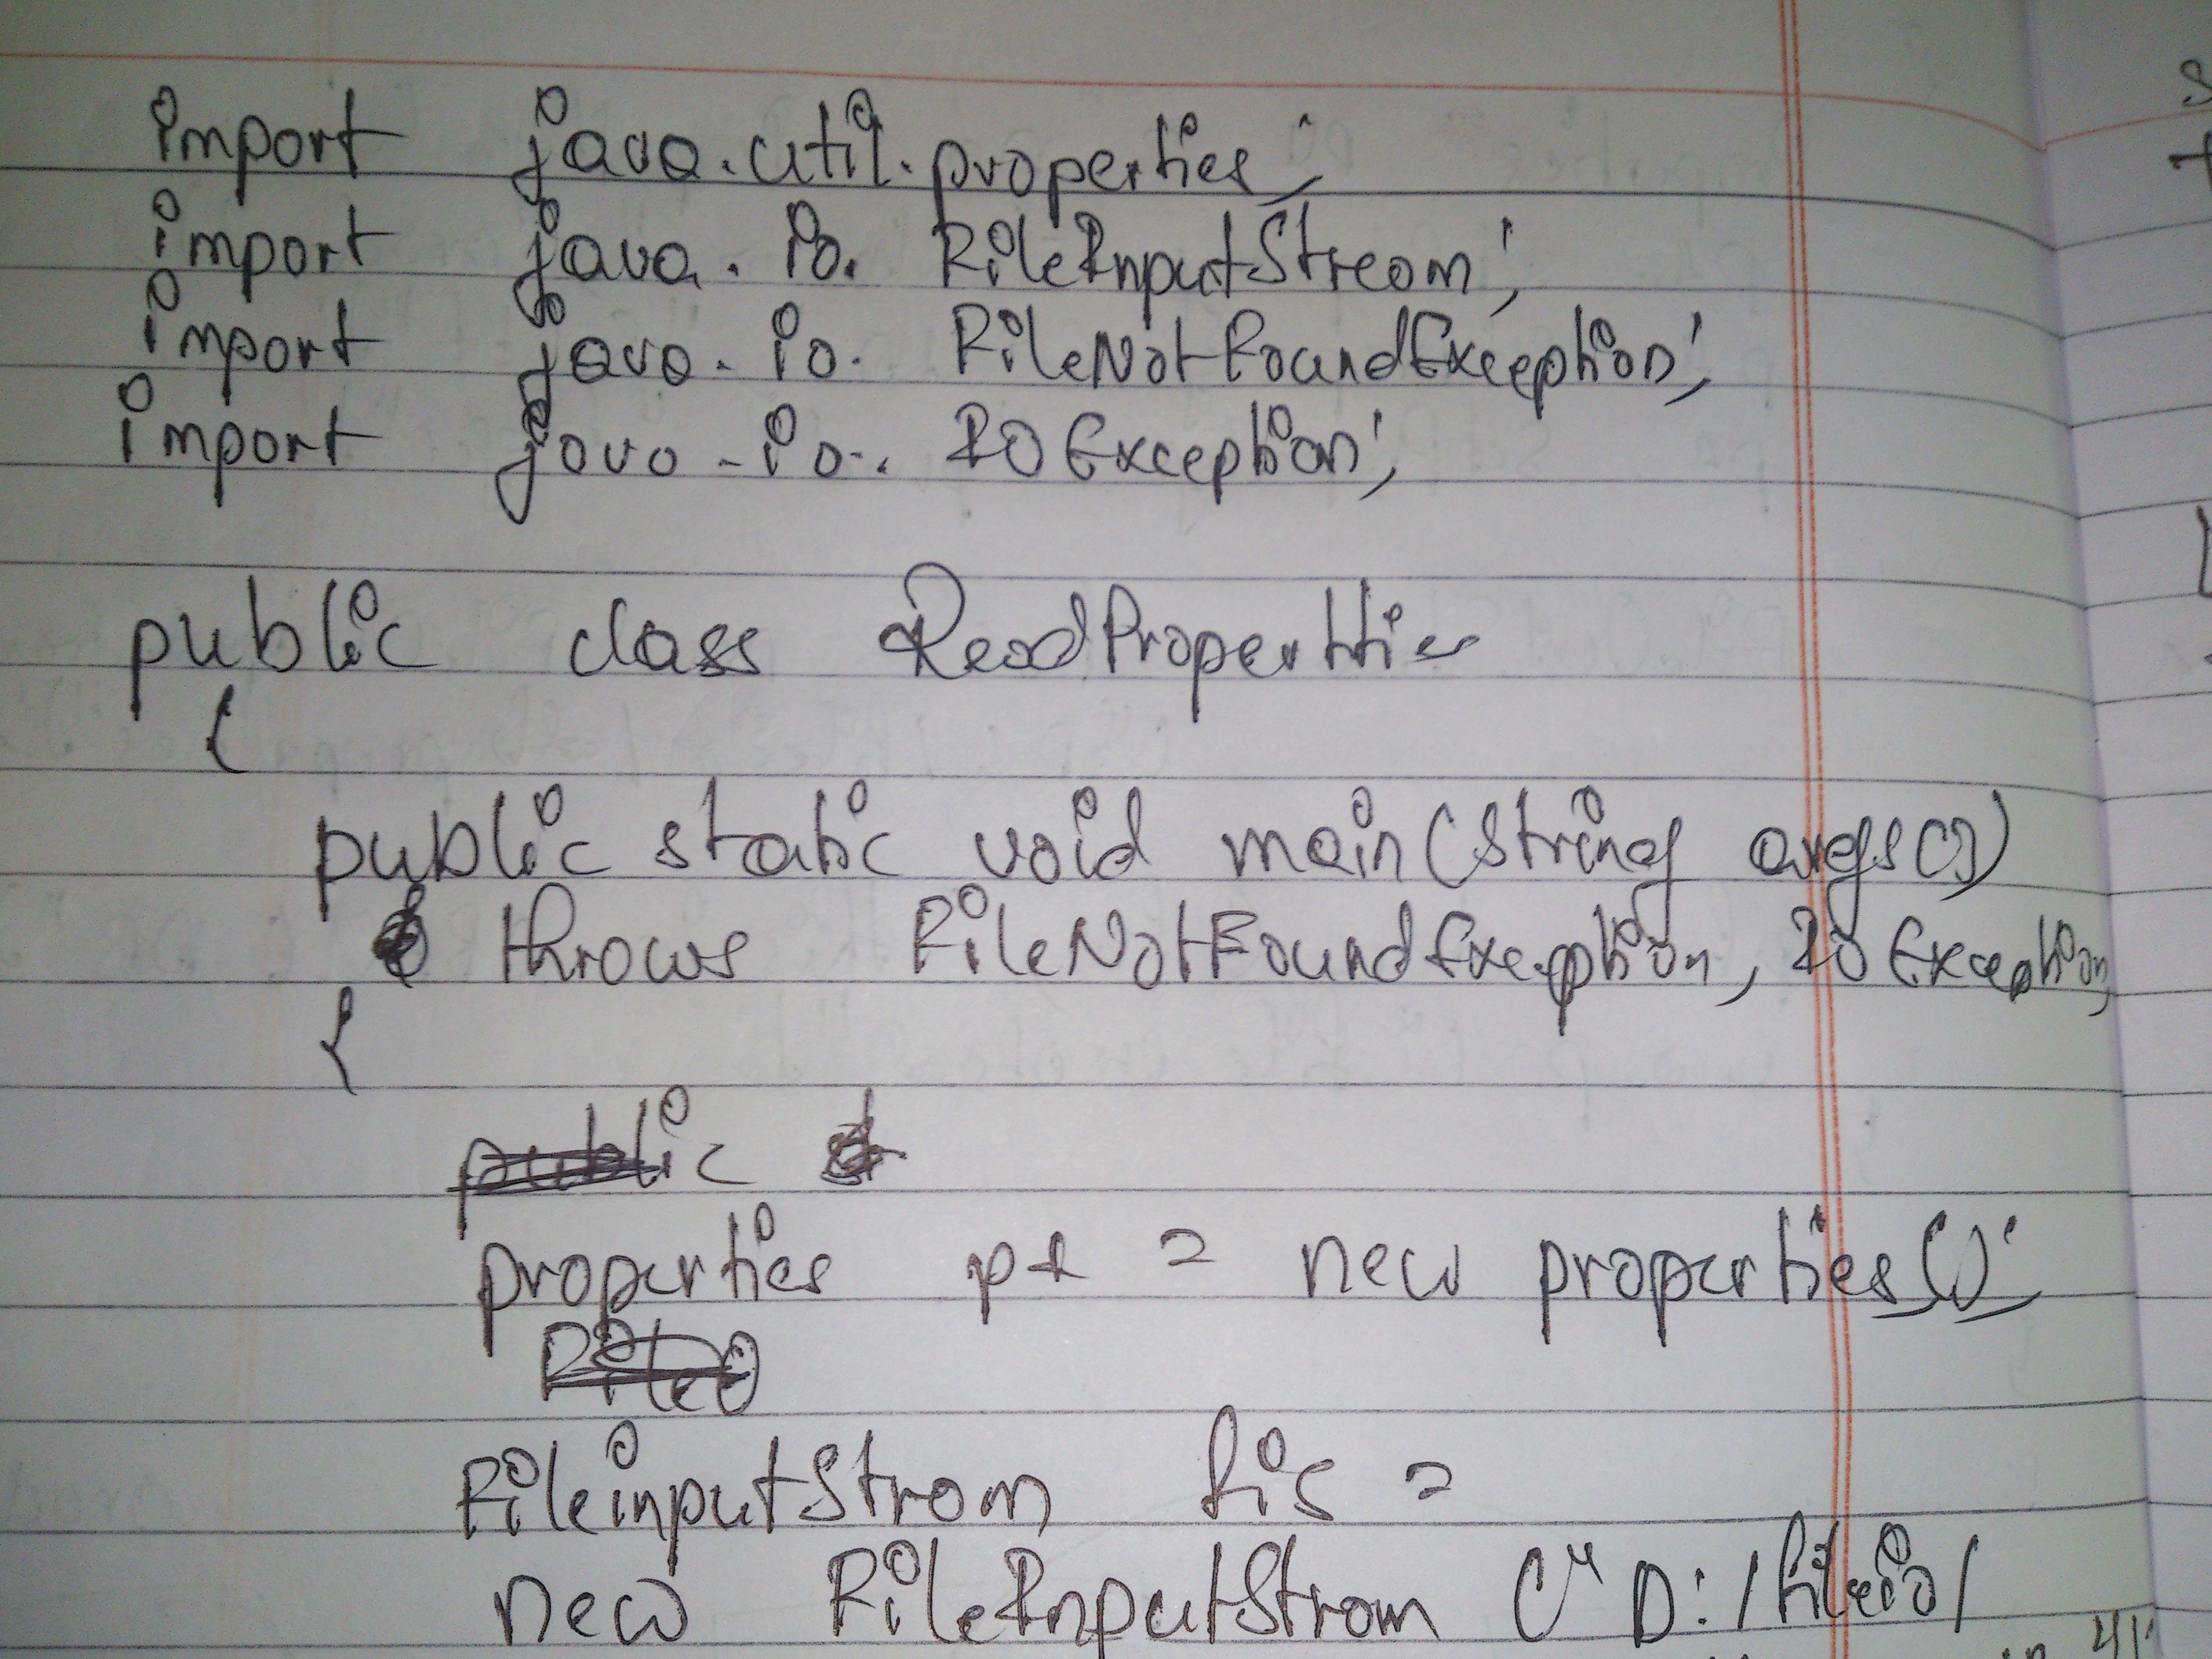 import java.util.properties;
import java.io.FileInputStream;
import java.io.FileNotFoundException;
import java.io.IOException;
public class ReadPropertties
{
public static void main(String args[])
throws FileNotFoundExeeption, IOException,
{
public
properties pt = new properties();
File
FileinputStrom fis =
new FileInputStrom ("D:/fileio/